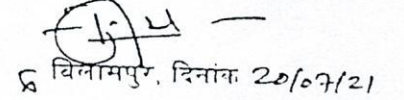 बिलासपुर, दिनांक 20/07/21